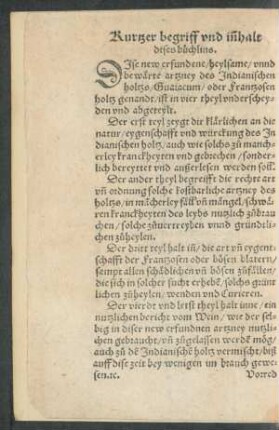 Kurtzer begriff vnd iñhalt
dises büchlins.
DIse new erfundene/heylsame/vnnd
bewärte artzney des Indianischen
holtzs/Guaiacum/oder Frantzosen
holtz genandt/ist in vier theyl vnderschey-
den vnd abgeteylt.
Der erst teyl zeygt dir klärlichen an die
natur/eygenschafft vnd würckung des In
dianischen holtz/auch wie solchs zů manch-
erley kranckheyten vnd gebrechen/sonder-
lich bereyttet vnd außerlesen werden soll.
Der ander theyl begreifft die recht art
vñ ordnung solche kostbarliche artzney des
holtzs/in mächerley fäll vñ mängel/schwä-
ren kranckheyten des leybs nutzlich zůbrau
chen/solche zůuertreyben vnnd gründtli-
chen züheylen.
Der dritt teyl halt iñ/die art vñ eygent-
schafft der Frantzosen oder bösen blatern/
sampt allen schädlichen vñ bösen zůfällen/
die sich in solcher sucht erhebē/solchs gründ
lichen züheylen/wenden vnd Curieren.
Der vierdt vnd letst theyl halt inne/ein
nutzlichen bericht vom Wein/wie der sel-
big in diser new erfundnen artzney nutzli-
chen gebraucht/vñ zůgelassen werdē mög/
auch zů dē Indianischē holtz vermischt/biß
auff dise zeit bey wenigen im brauch gewe-
sen.ꝛc. Vorred